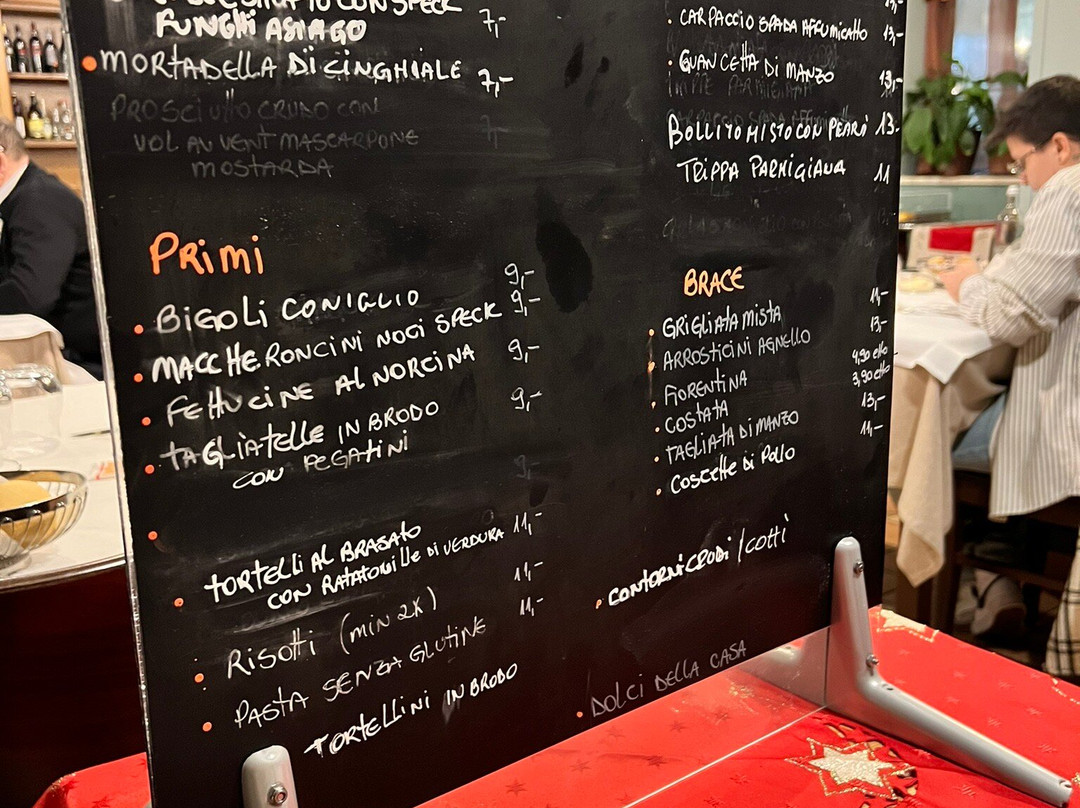 CON SPECK
FUNGHI ASIAGO 7,-
MORTADELLA DI CINGHIALE 7,-
PROSCIUTTO CRUDO CON
VOL AU VENT MASCARPONE
MOSTARDA
PRIMI
BIGOLI CONIGLIO 9,-
MACCHERONCINI NOCI SPECK 9,-
FETTUCINE AL NORCINA 9,-
TAGLIATELLE IN BRODO 9,-
CON FEGATINI
TORTELLI AL BRASATO
CON RATATOUILLE DI VERDURA 11,-
RISOTTI (MIN 2X) 11,-
PASTA SENZA GLUTINE 11,-
TORTELLINI IN BRODO
CARPACCIO SPADA AFFUMICATTO 13,-
GUANCETTA DI MANZO 13,-
BOLLITO MISTO CON PEARÀ 13-
TRIPPA PARMIGIANA 11
BRACE
GRIGLIATA MISTA 11,-
ARROSTICINI AGNELLO 13,-
FIORENTINA 4,90 etto
COSTATA 3,90 etto
TAGLIATA DI MANZO 13,-
COSCETTE DI POLLO 11,-
CONTORNI CRUDI/COTTI
DOLCI DELLA CASA